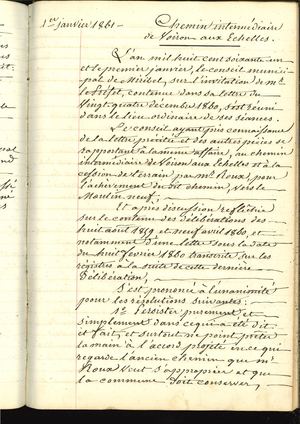 1er janvier 1861 - Chemin intermédiaire
de Voiron aux Echelles.
L'an mil huit cent soixante un
et le premier janvier, le conseil munici-
pal de Miribel, sur l'invitation de mr
le Préfet, contenue dans sa lettre du
Vingt quatre décembre 1860, s'est réuni
dans le lieu ordinaire de ses séances.
Le conseil ayant pris connaissance
de la lettre précitée et des autres pièces se
rapportant à la même affaire, au chemin
intermédiaire de Voiron aux Echelles et à la
cession de terrain par mr Roux, pour
l'achèvement du dit chemin, vers le
Moulin neuf;
Et après discussion réfléchie
sur le contenu des délibérations des
huit août 1859 et neuf avril 1860, et
notamment d'une lettre sous la date
du huit février 1860 transcrite sur les
régistres à la suite de cette dernière
délibération,
S'est prononcé à l'unanimité
pour les résolutions suivantes:
1º Persister purement et
simplement dans ce qui a été dit
et fait, et surtout ne point prêter
la main à l'accord projeté en ce qui
regarde l'ancien chemin que mr
Roux veut s'approprier et que
la commune doit conserver,